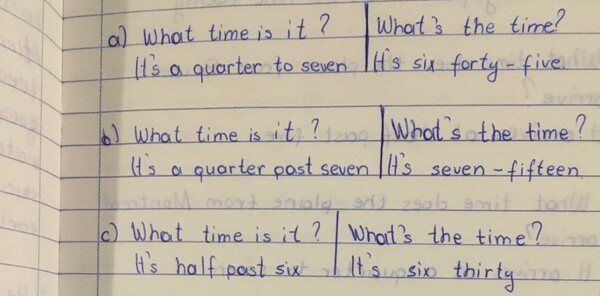 a) What time is it? | What's the time?
It's a quarter to seven | It's six forty-five.
b) What time is it? | What's the time?
It's a quarter past seven | It's seven-fifteen.
c) What time is it? | What's the time?
It's half past six | It's six thirty